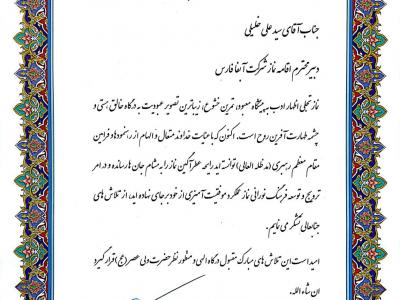 جناب آقای سید علی خلیلی
دبیر محترم اقامه نماز شرکت آبفا فارس
نماز تجلی اظهار ادب به پیشگاه معبود، تمرین خشوع، زیباترین تصویر عبودیت به درگاه خالق هستی و
چشمه طهارت آفرین روح است. اکنون که با عنایت خداوند متعال و الهام از رهنمودها و فرامین
مقام معظم رهبری (مد ظله العالی) توانسته اید رایحه عطرآگین نماز را به مشام جان ها رسانده و در امر
ترویج و توسعه فرهنگ نورانی نماز عملکرد موفقیت آمیزی از خود بر جای نهاده اید، از تلاش های
جنابعالی تشکر می نمایم.
امید است این تلاش های مبارک مقبول درگاه الهی و منظور نظر حضرت ولی عصر (عج) قرار گیرد
ان شاء الله.